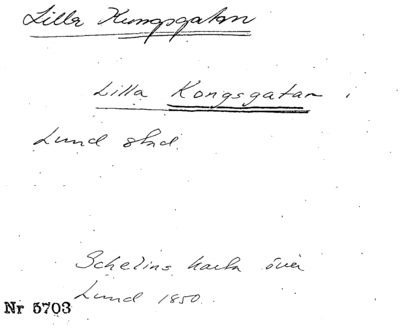 Lilla Kungsgatan
Lilla Kongsgatan i
Lund stad
Schelins karta över
Lund 1850.
Nr 5703